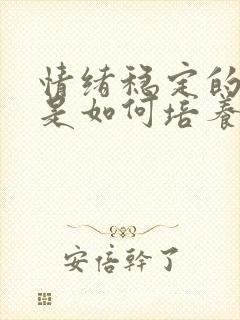 情绪稳定的
是如何培养
安倍幹了